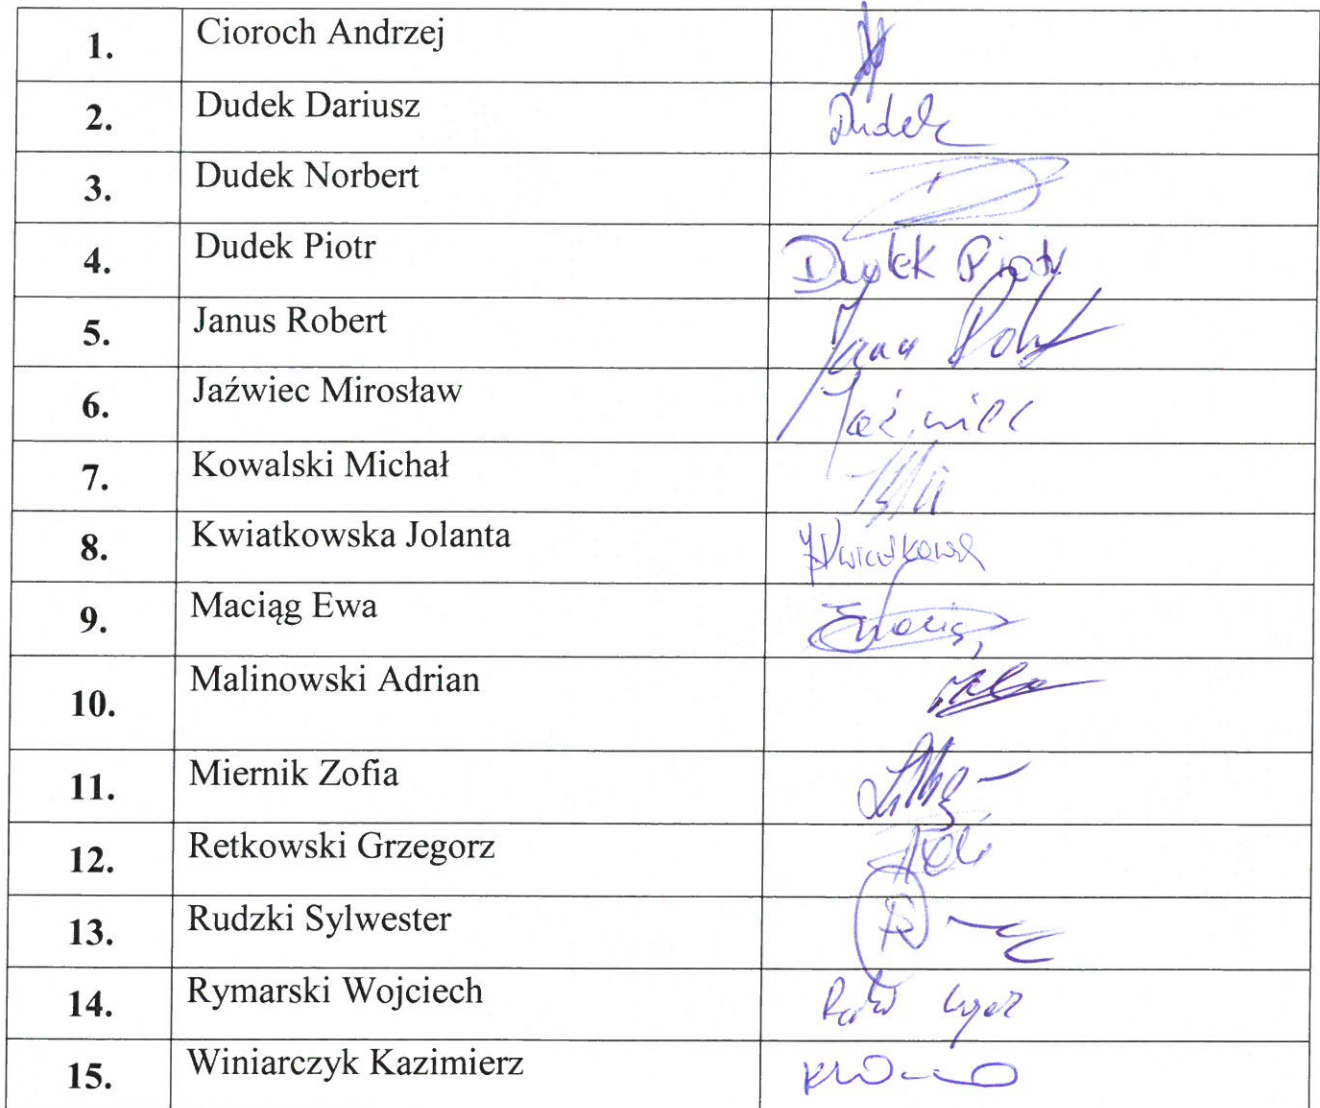 1. Cioroch Andrzej
2. Dudek Dariusz Dudek
3. Dudek Norbert
4. Dudek Piotr Dudek Piotr
5. Janus Robert
6. Jaźwiec Mirosław Jaźwiec
7. Kowalski Michał
8. Kwiatkowska Jolanta
9. Maciąg Ewa
10. Malinowski Adrian
11. Miernik Zofia
12. Retkowski Grzegorz
13. Rudzki Sylwester
14. Rymarski Wojciech
15. Winiarczyk Kazimierz